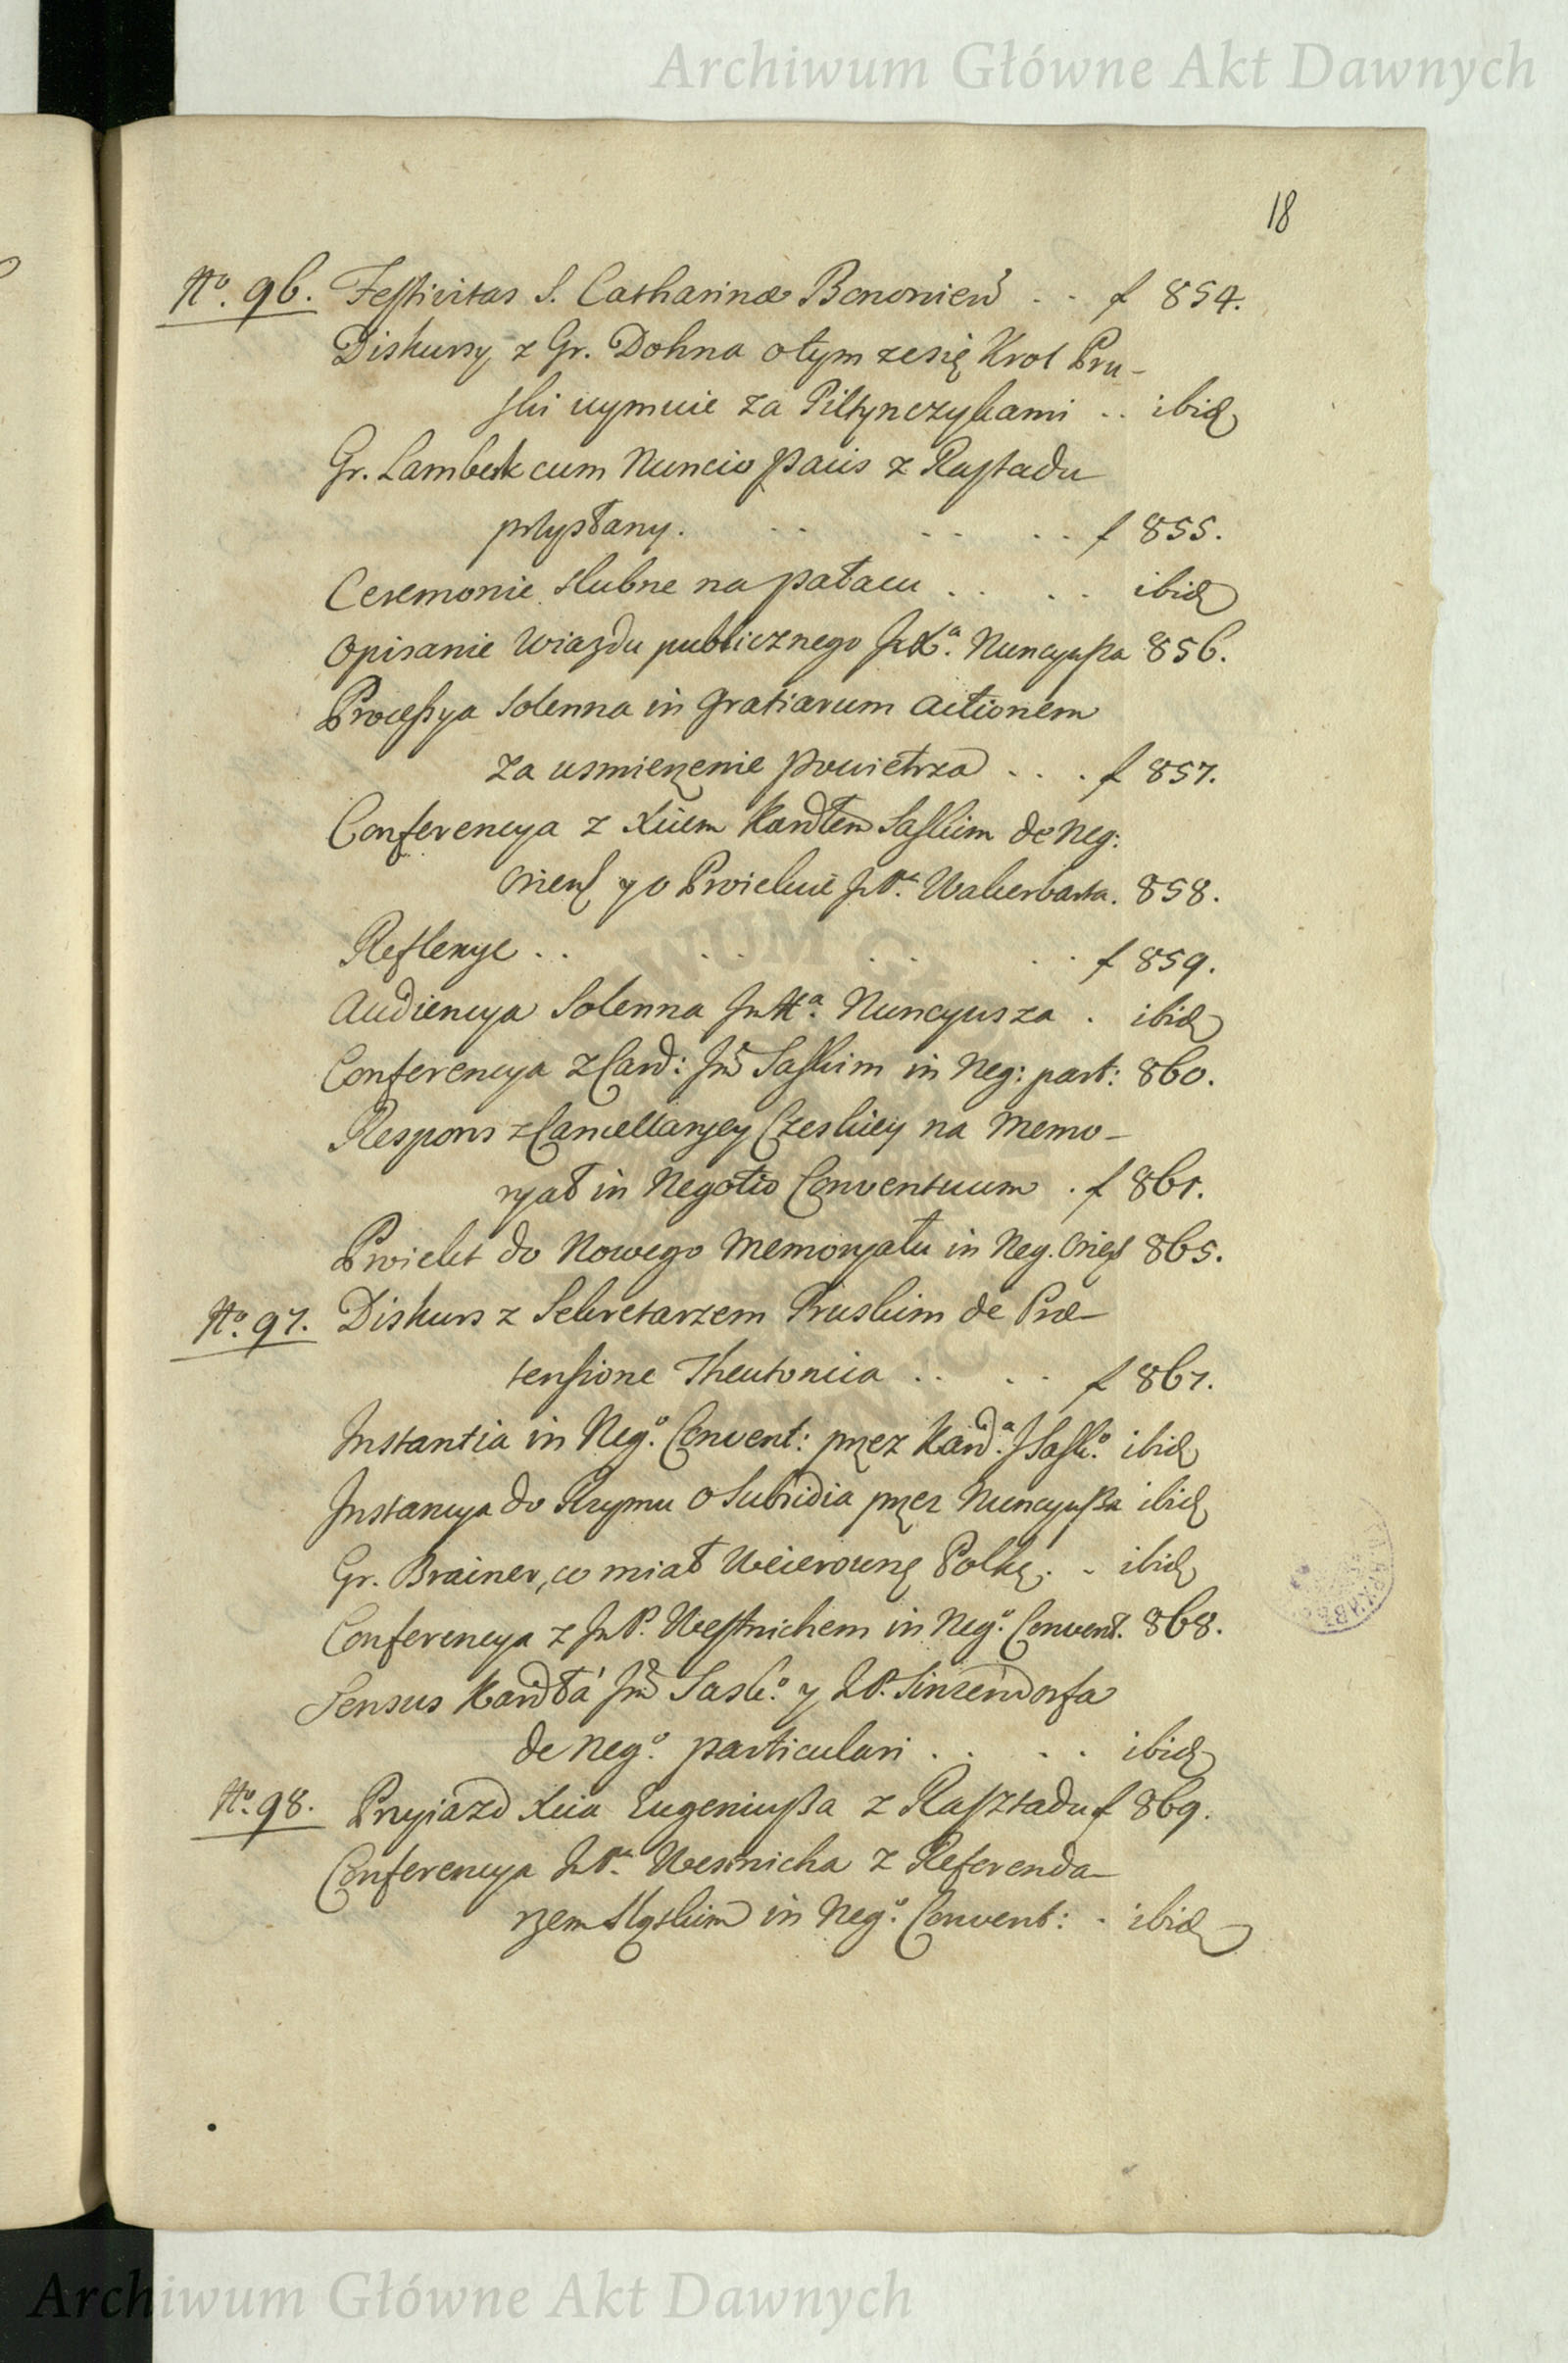 Archiwum Główne Akt Dawnych
18
No. 96. Festivitas S. Catharinæ Bononien̄ . . f 854.
Diskursy z Gr. Dohna o tym ze się Krol Pru-
ski uymuie za Piltynczykami . . ibid
Gr. Lambek cum Nuncio pacis z Rastadu
przysłany. . . . . . . f 855.
Ceremonie slubne na pałacu . . . . ibid
Opisanie Wiazdu publicznego JXa. Nuncyusza 856.
Processya solenna in gratiarum actionem
za usmierzenie powietrza . . . f 857.
Conferencya z Xiiem Kardłem Saskim de Neg:
y o Proiekcie JPa. Wakerbarta. 858.
Reflexye . . . . . . . . f 859.
Audiencya Solenna Nuncyusza . ibid
Conferencya z Card: Saskim in Neg: part: 860.
Respons z Cancellaryey Czeskiey na Memo-
ryał in Negotio Conventuum . f 861.
Proiekt do Nowego Memoryału in Neg. 865.
No. 97. Diskurs z Sekretarzem Pruskim de Præ-
tensione Theutonica . . . . f 867.
Instantia in Nego. Convent: przez Kard.a Sasko. ibid
Instancya do Rzymu o Subsidia przez Nuncyusza ibid
Gr. Brainer, co miał Weierownę Polkę. . ibid
Conferencya z JP. Westnichem in Nego. Convent. 868.
Sensus Kardła Sasko. y JP. Sinzendorfa
de Nego. particulari . . . . ibid
No. 98. Przyiazd Xcia Eugeniusza z Rasztadu f 869.
Conferencya JPa. Wesnicha z Referenda-
rzem Sląskim in Nego. Convent: . ibid
Archiwum Główne Akt Dawnych